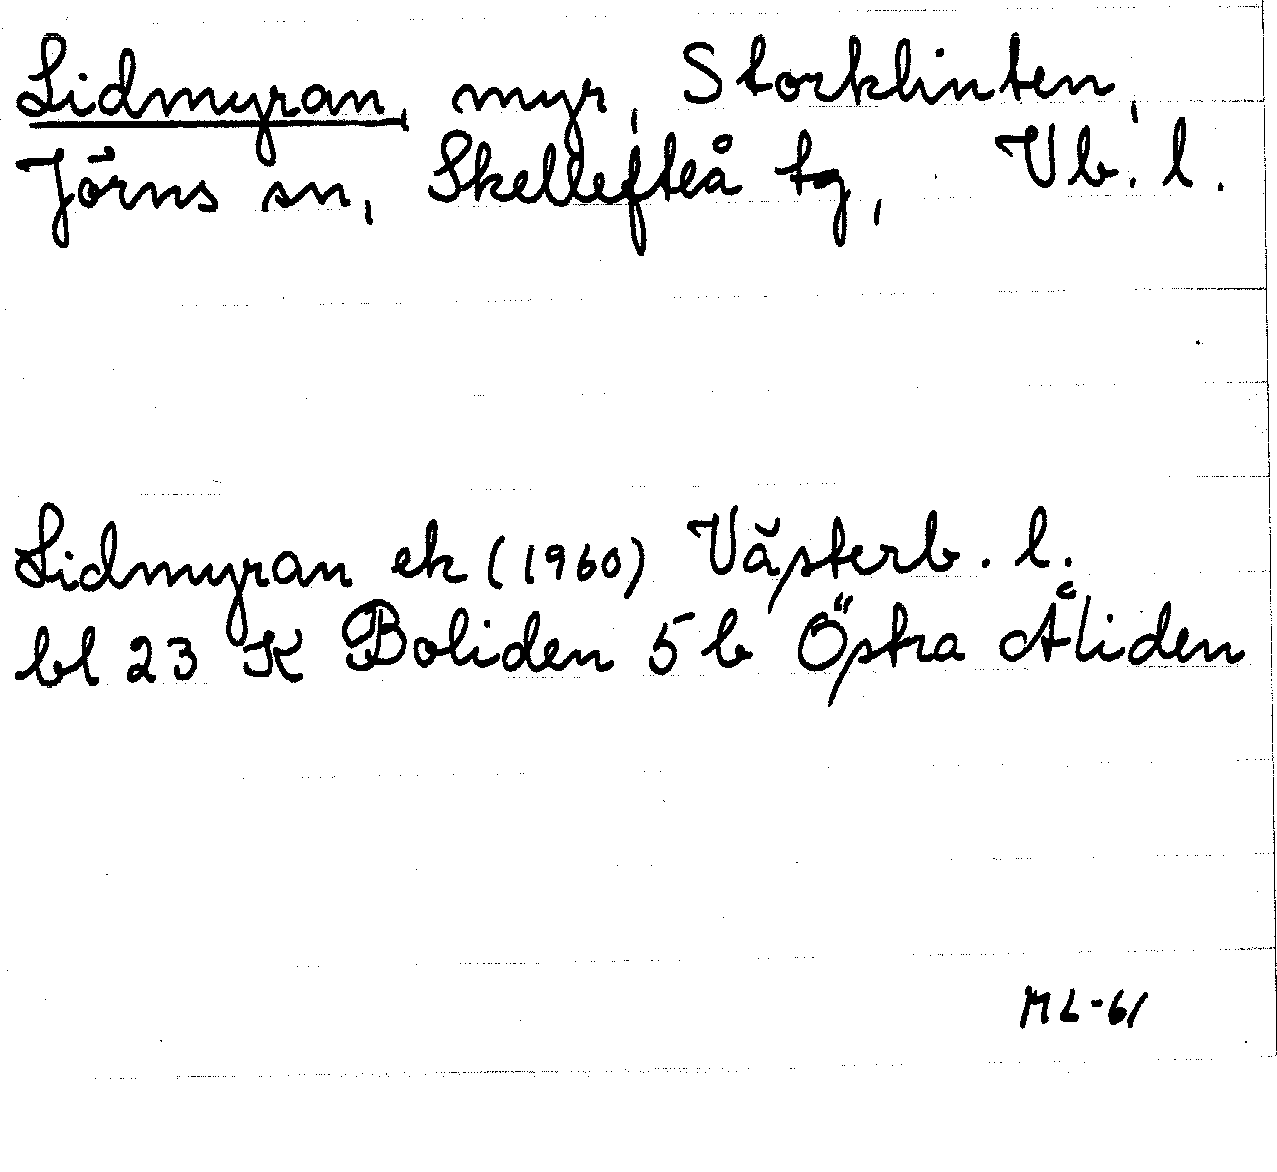 Lidmyran, myr, Storklinten,
Jörns sn, Skellefteå tg, Vb. l.
Lidmyran ek (1960) Västerb. l.
bl 23 K Boliden 5 b Östra Åliden
ML-61